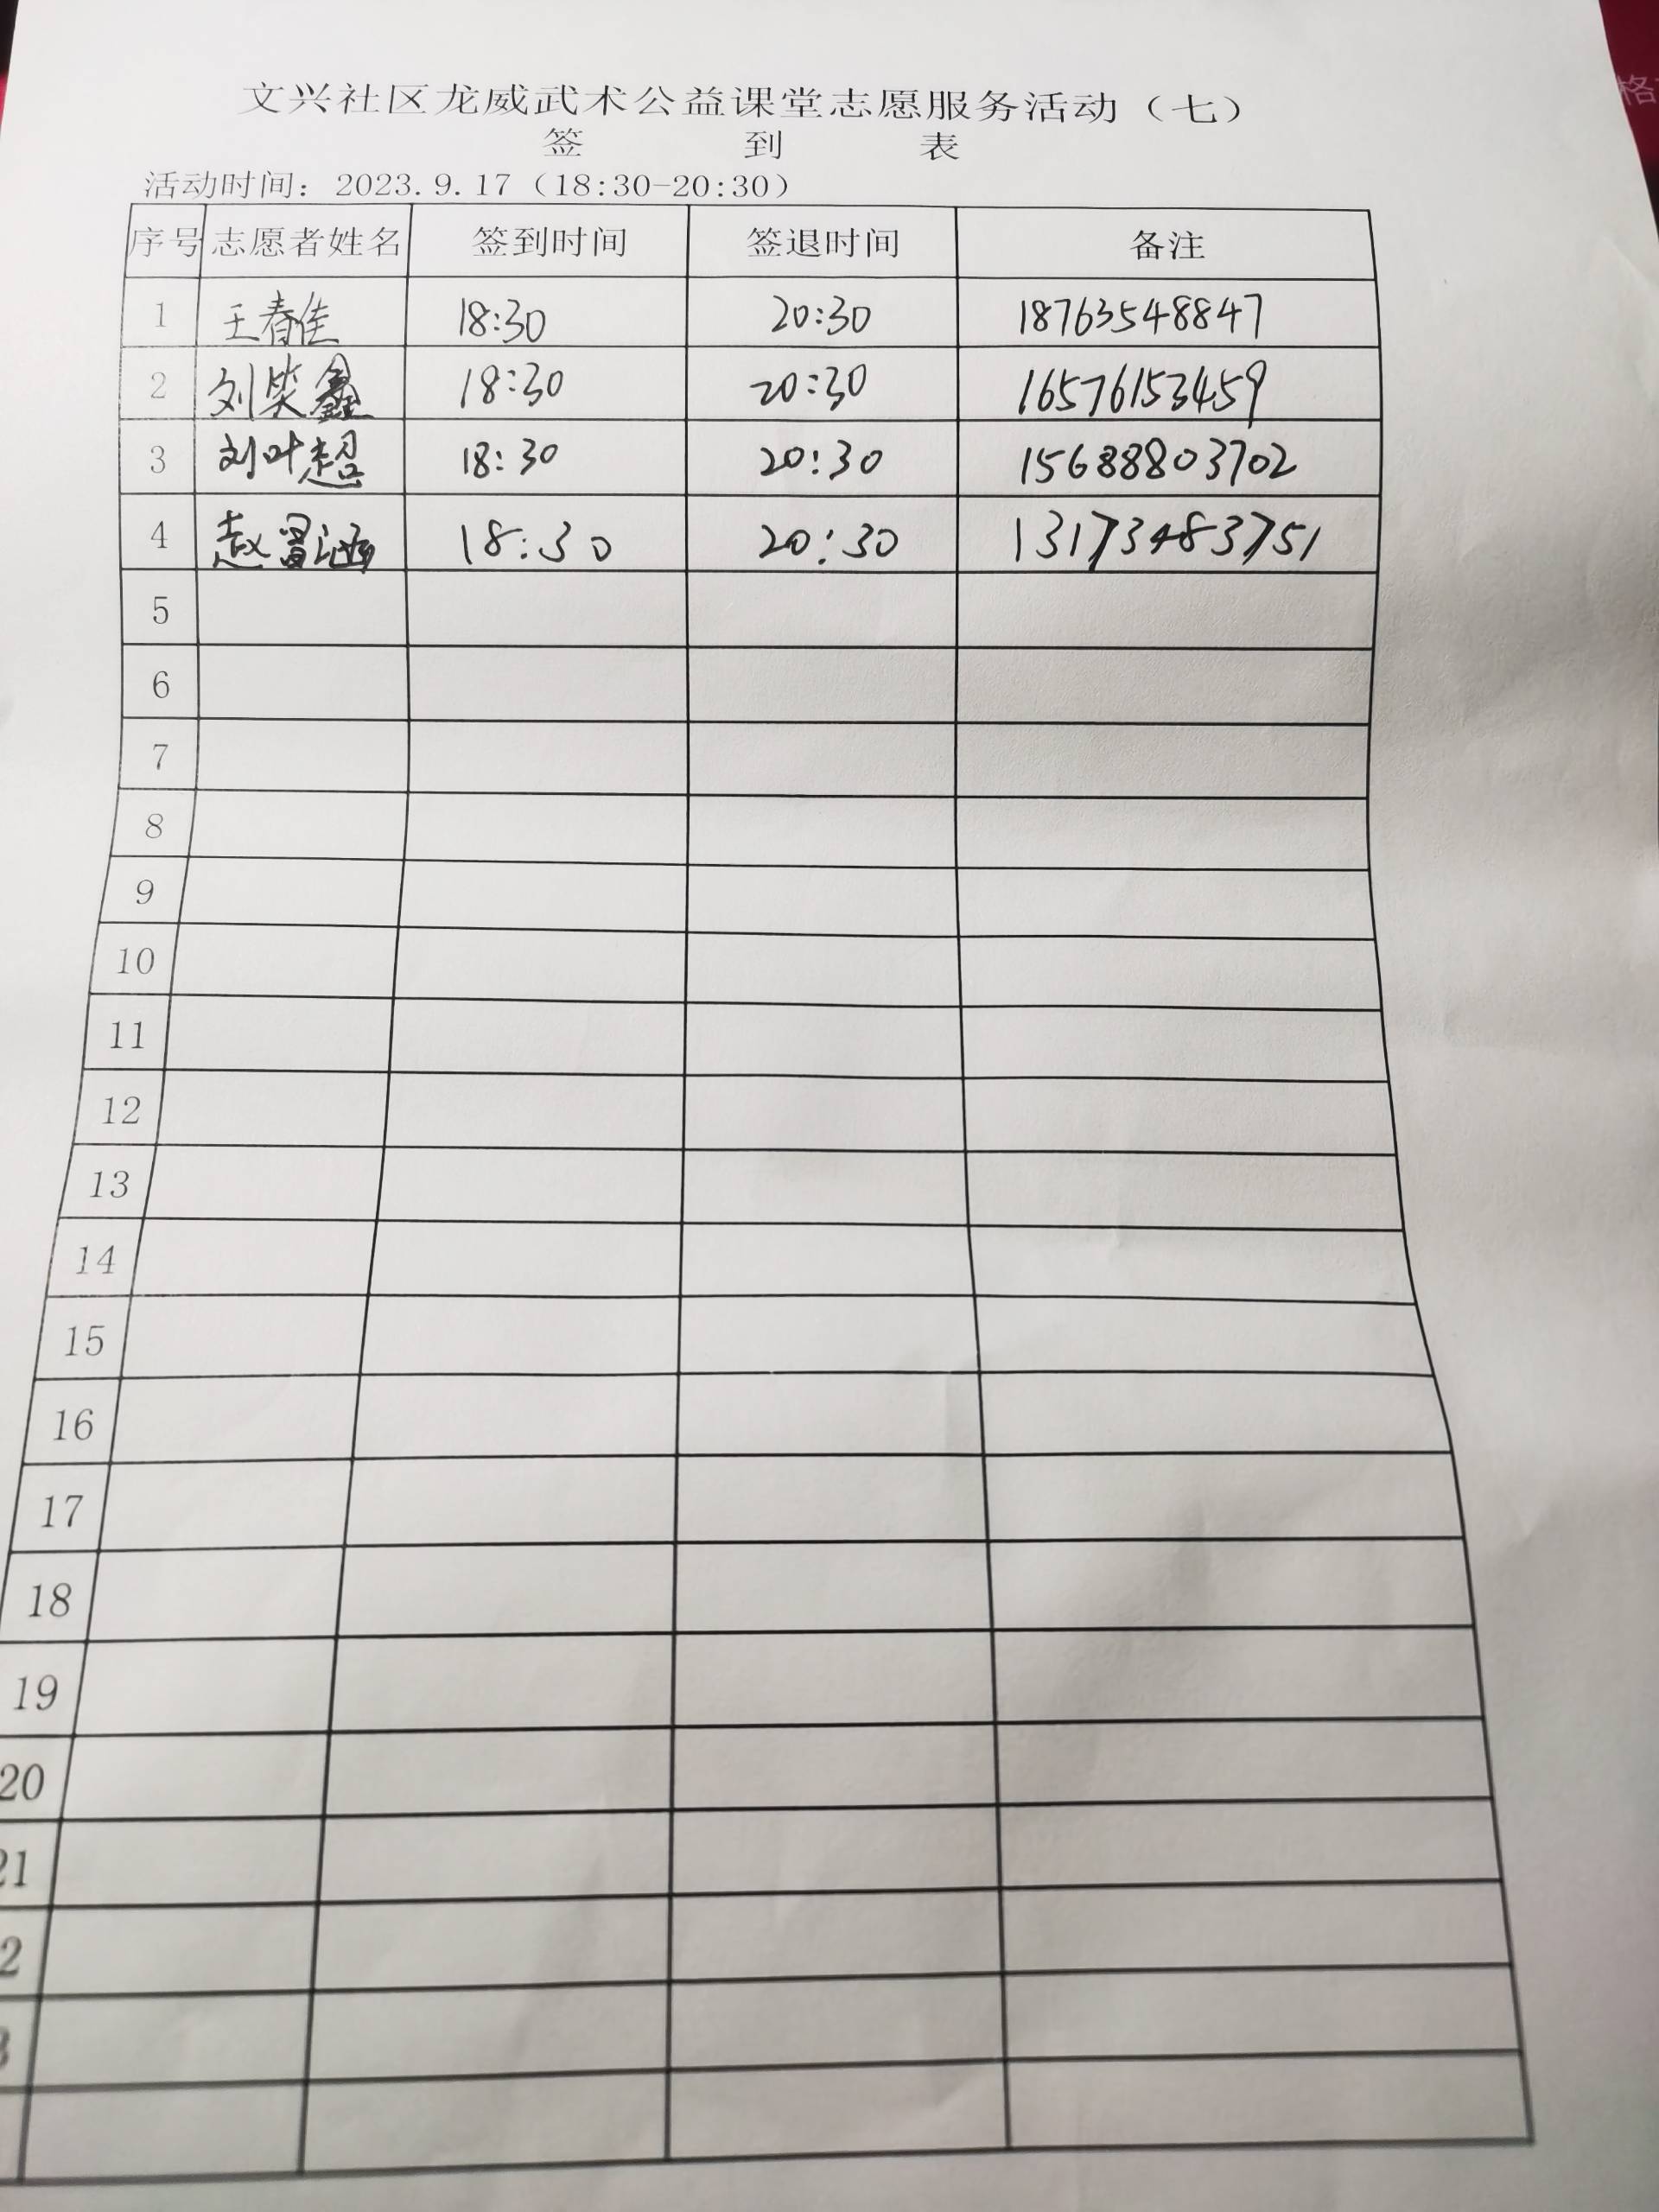 格
文兴社区龙威武术公益课堂志愿服务活动（七）
签 到 表
活动时间：2023.9.17（18:30-20:30）
序号 志愿者姓名 签到时间 签退时间 备注
1 王春佳 18:30 20:30 18763548847
2 刘笑鑫 18:30 20:30 16576153459
3 刘叶超 18:30 20:30 15688803702
4 赵 涵 18:30 20:30 13173483751
5
6
7
8
9
10
11
12
13
14
15
16
17
18
19
20
21
2
3